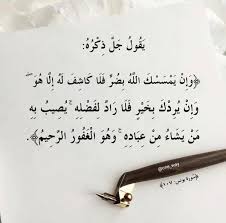 يَقُولُ جَلَّ ذِكْرُهُ:
﴿وَإِنْ يَمْسَسْكَ اللَّهُ بِضُرٍّ فَلَا كَاشِفَ لَهُ إِلَّا هُوَ ۖ
وَإِنْ يُرِدْكَ بِخَيْرٍ فَلَا رَادَّ لِفَضْلِهِ ۚ يُصِيبُ بِهِ
مَنْ يَشَاءُ مِنْ عِبَادِهِ ۚ وَهُوَ الْغَفُورُ الرَّحِيمُ﴾.
﴿سورة يونس: ١٠٧﴾